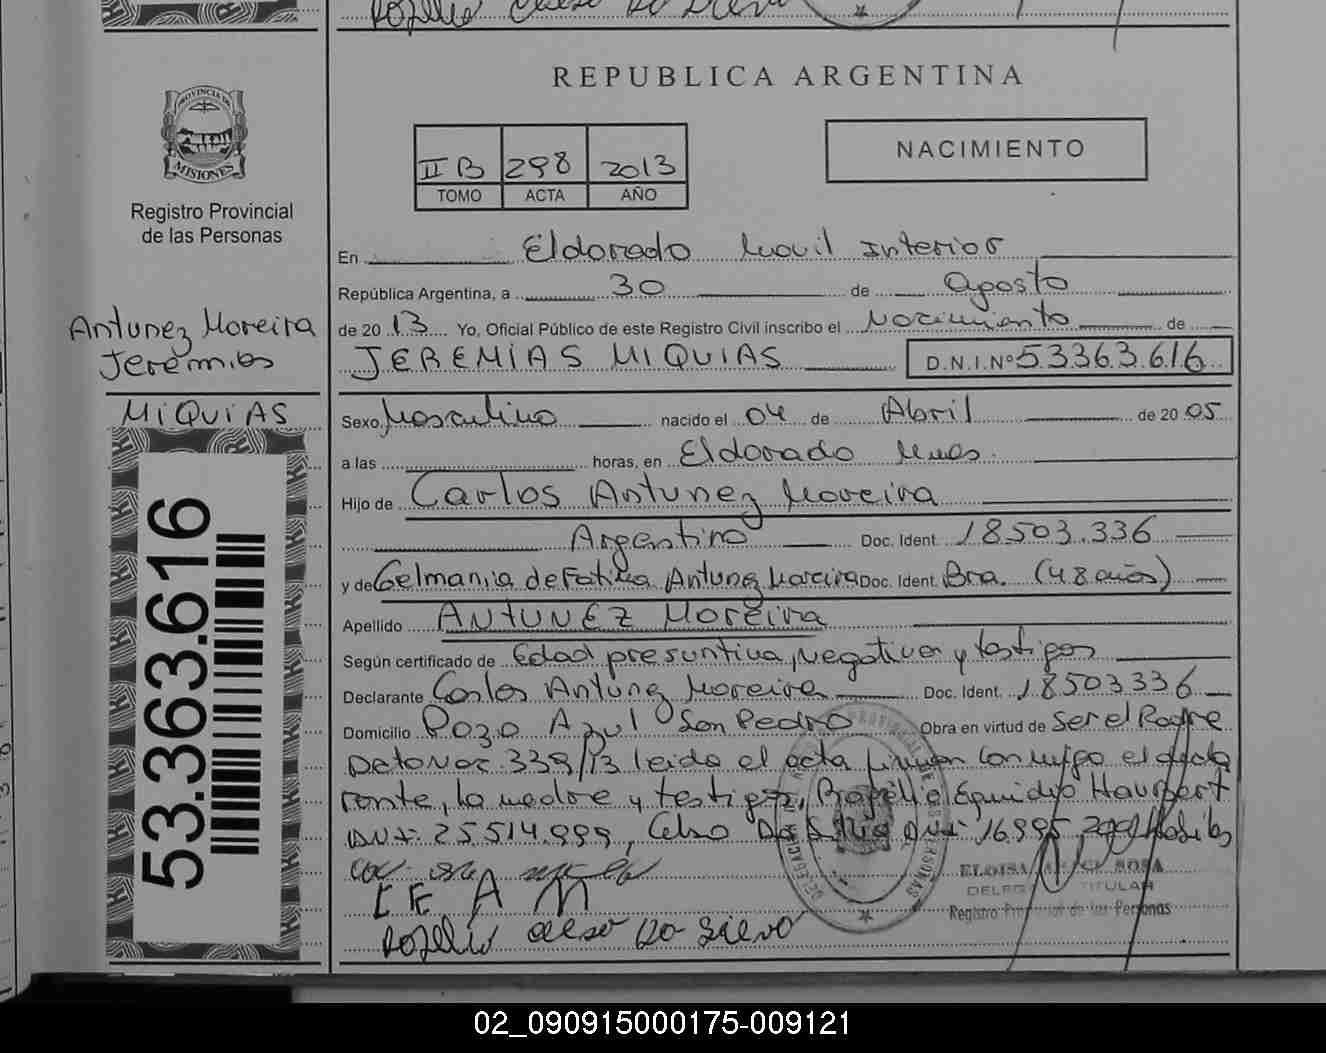 REPUBLICA ARGENTINA
PROVINCIA DE
MISIONES
Registro Provincial
de las Personas
II B 298 2013
TOMO ACTA AÑO
NACIMIENTO
En Eldorado Movil Interior
República Argentina, a 30 de Agosto
de 20 13 Yo, Oficial Público de este Registro Civil inscribo el Nacimiento de
JEREMIAS MIQUIAS D.N.I.Nº 53363.616
Antunez Moreira
Jeremias
MiQUiAS
53.363.616
Sexo Masculino nacido el 04 de Abril de 20 05
a las horas, en Eldorado Mnes.
Hijo de Carlos Antunez Moreira
Argentino Doc. Ident. 18503.336
y de Gelmania de Fatima Antunez Moreira Doc. Ident. Bra. (48 años)
Apellido ANTUNEZ Moreira
Según certificado de Edad presuntiva, negativa y testigos
Declarante Carlos Antunez Moreira Doc. Ident. 18503336
Domicilio Pozo Azul San Pedro Obra en virtud de ser el Padre
339/13 leida el acta firman conmigo el decla
rante, la madre y testigos, Haupert
25.514.999, Celso Da Silva 16.995.
ELOISA SOSA
DELEG TITULAR
Registro Provincial de las Personas
Celso Da Silva
02_090915000175-009121